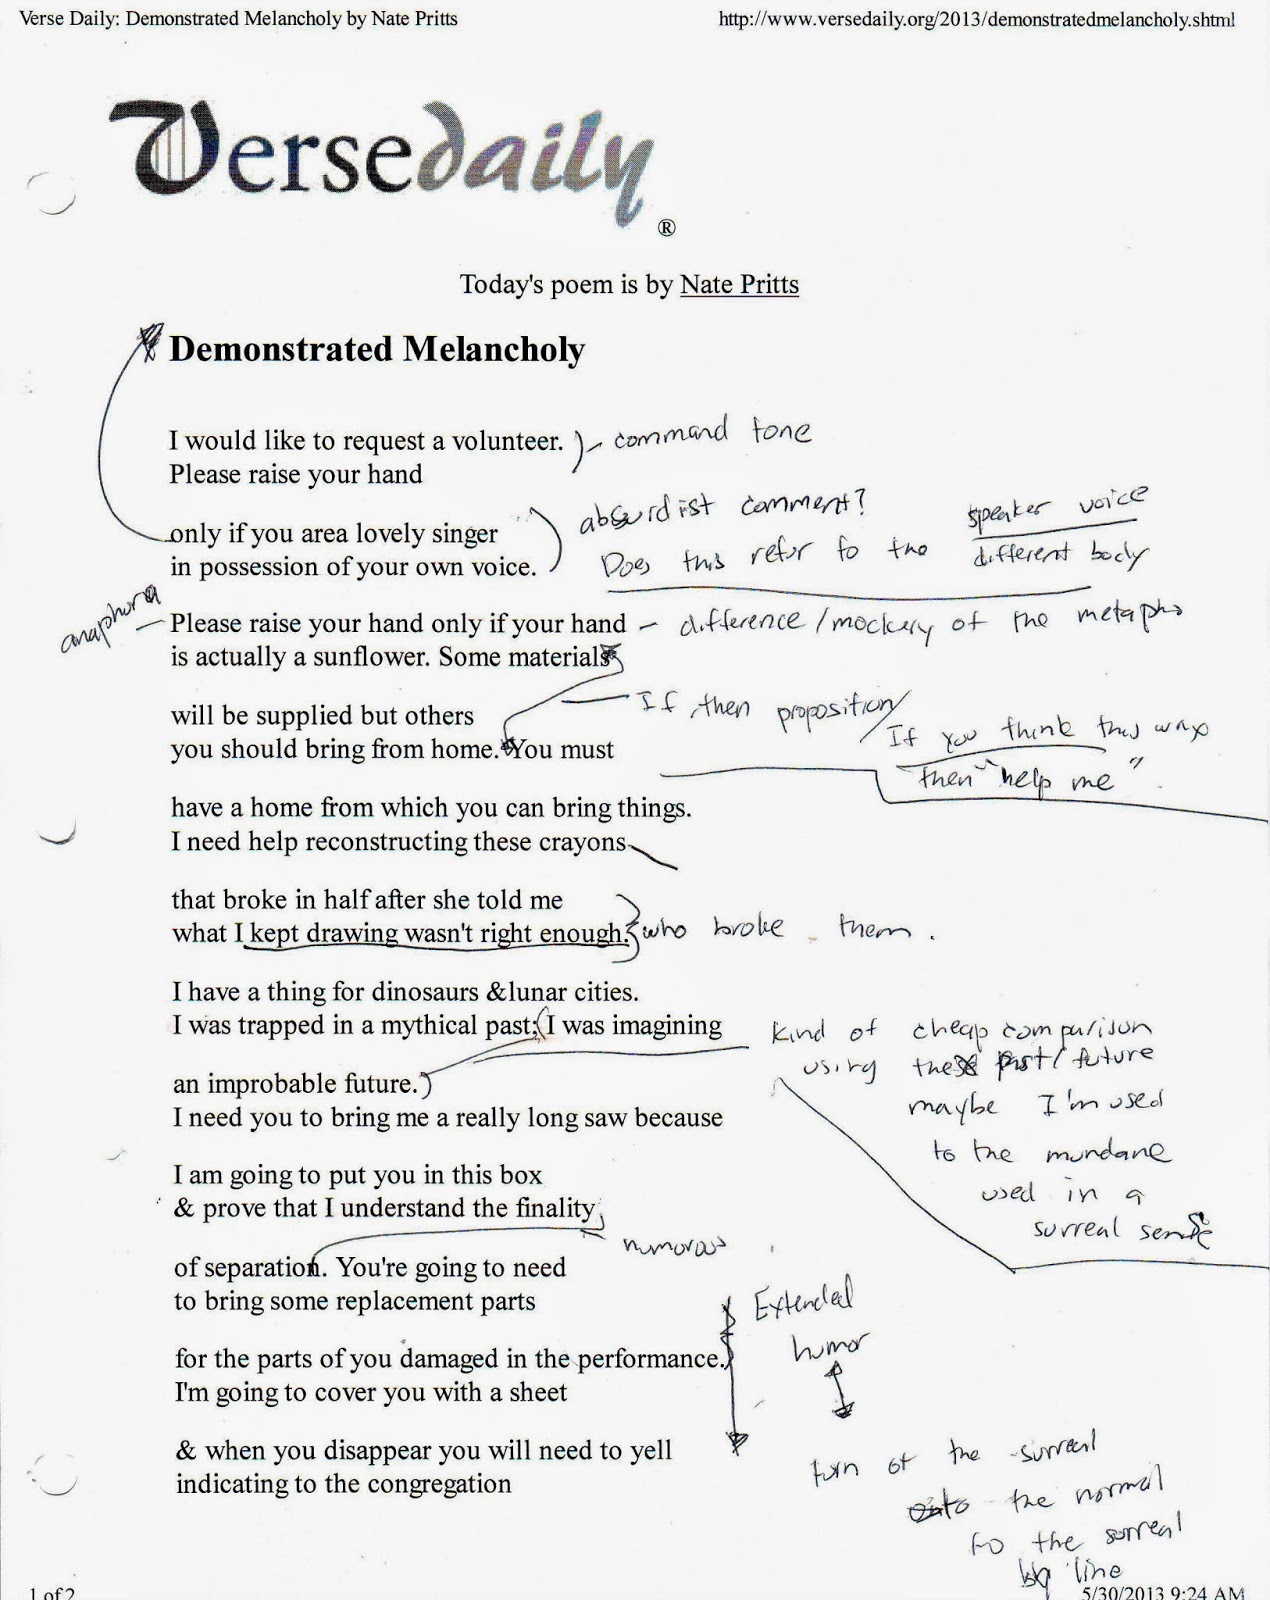 Verse Daily: Demonstrated Melancholy by Nate Pritts
http://www.versedaily.org/2013/demonstratedmelancholy.shtml
Versedaily
®
Today's poem is by Nate Pritts
Demonstrated Melancholy
I would like to request a volunteer.
command tone
Please raise your hand
absurdist comment?
speaker voice
only if you area lovely singer
Does this refer to the different body
in possession of your own voice.
anaphora
Please raise your hand only if your hand
difference/mockery of the metapho
is actually a sunflower. Some materials
If, then proposition/
will be supplied but others
If you think this way
you should bring from home. You must
then "help me".
have a home from which you can bring things.
I need help reconstructing these crayons
that broke in half after she told me
what I kept drawing wasn't right enough.
who broke them.
I have a thing for dinosaurs &lunar cities.
I was trapped in a mythical past; I was imagining
kind of cheap comparison
using these past/future
an improbable future.
maybe I'm used
I need you to bring me a really long saw because
to the mundane
I am going to put you in this box
used in a
& prove that I understand the finality
surreal sense
humorous
of separation. You're going to need
to bring some replacement parts
Extended
humor
for the parts of you damaged in the performance.
I'm going to cover you with a sheet
& when you disappear you will need to yell
turn of the surreal
indicating to the congregation
to the normal
to the surreal
by line
1 of 2
5/30/2013 9:24 AM